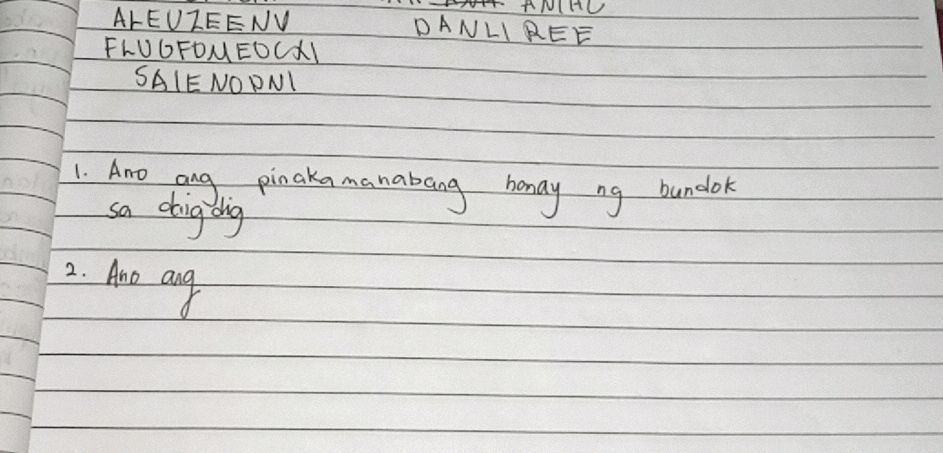 ANIHC
ALEUZEENV DANLI REE
FLUGFOMEOCXI
SAIENODNI
1. Ano ang pinakamanabang honay ng bundok
sa daigdig
2. Ano ang